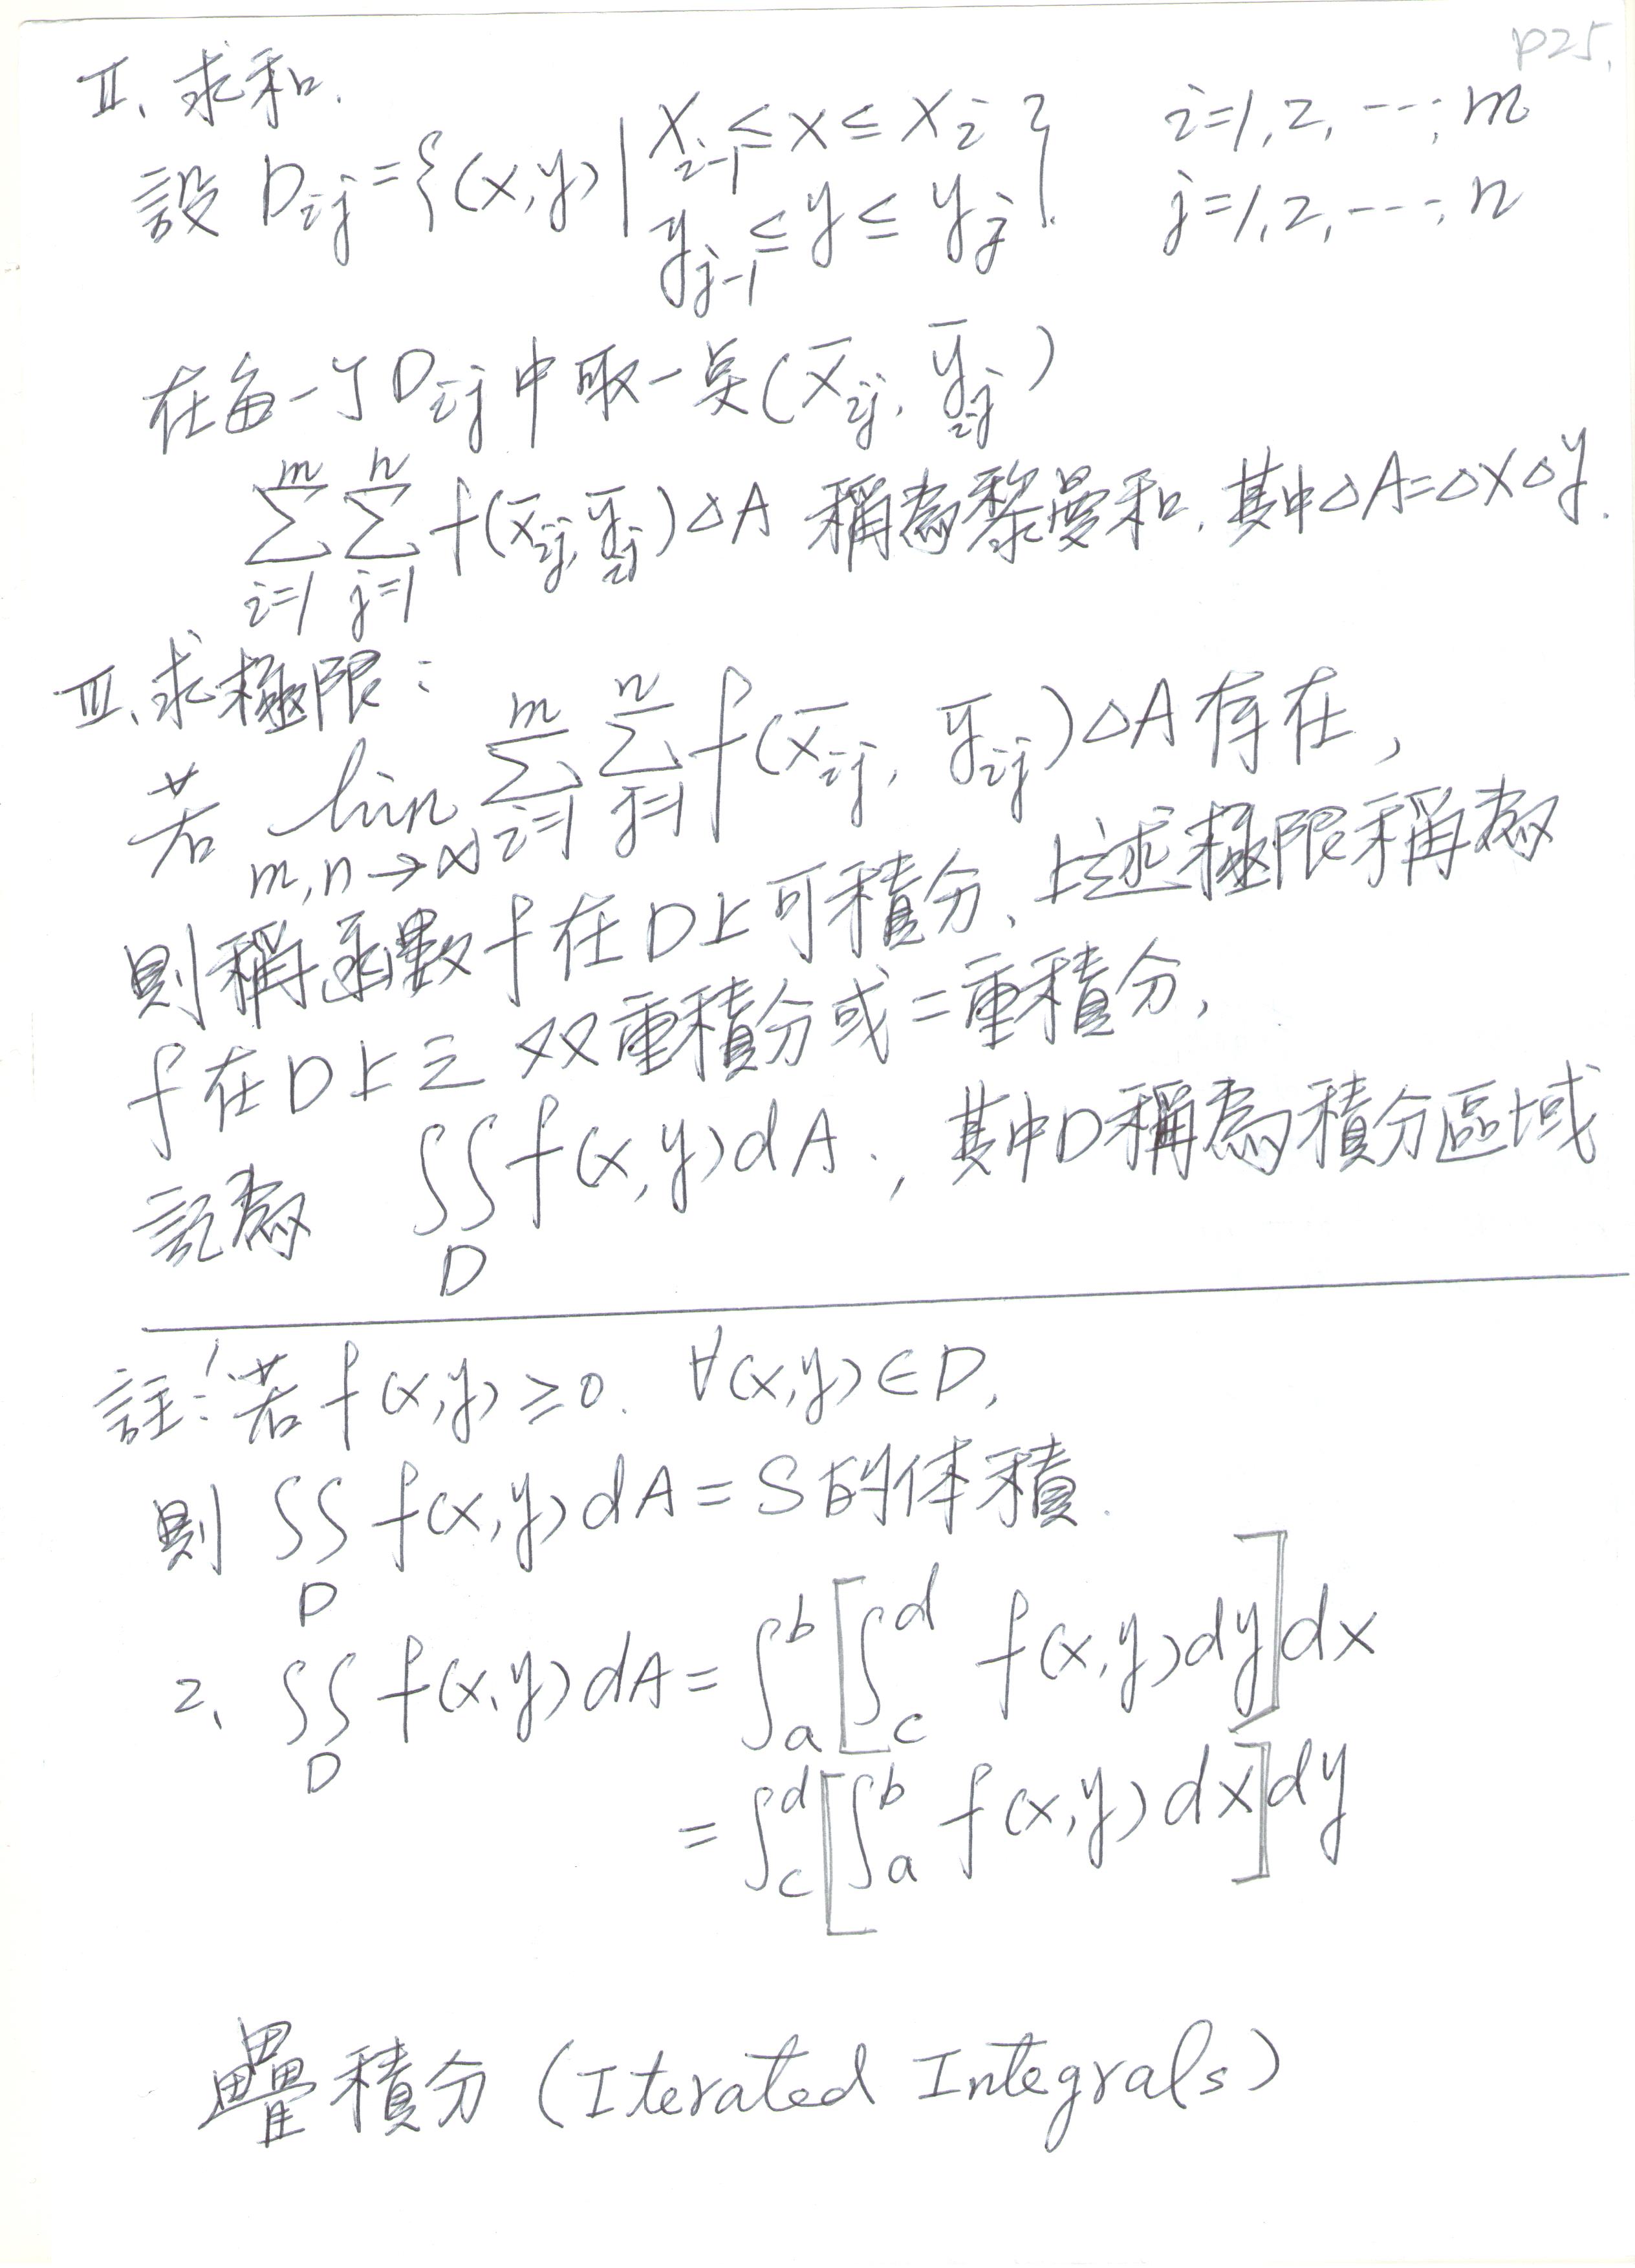 p25.
II、求和.
設 D_{ij} = {(x,y) | x_{i-1} ≤ x ≤ x_i, y_{j-1} ≤ y ≤ y_j}. i=1,2,…,m j=1,2,…,n
在每一个D_{ij}中取一点(x̄_{ij}, ȳ_{ij})
∑_{i=1}^{m} ∑_{j=1}^{n} f(x̄_{ij}, ȳ_{ij})△A 稱為黎曼和. 其中△A=△x△y.
III、求極限:
若 lim_{m,n→∞} ∑_{i=1}^{m} ∑_{j=1}^{n} f(x̄_{ij}, ȳ_{ij})△A 存在,
則稱函數f在D上可積分、上述極限稱為
f在D上之双重積分或二重積分,
記為 ∬_D f(x,y)dA., 其中D稱為積分區域
註:1. 若 f(x,y) ≥ 0. ∀(x,y)∈D,
則 ∬_D f(x,y)dA = S的体積.
2、∬_D f(x,y)dA = ∫_a^b [∫_c^d f(x,y)dy]dx
= ∫_c^d [∫_a^b f(x,y)dx]dy
疊積分 (Iterated Integrals)